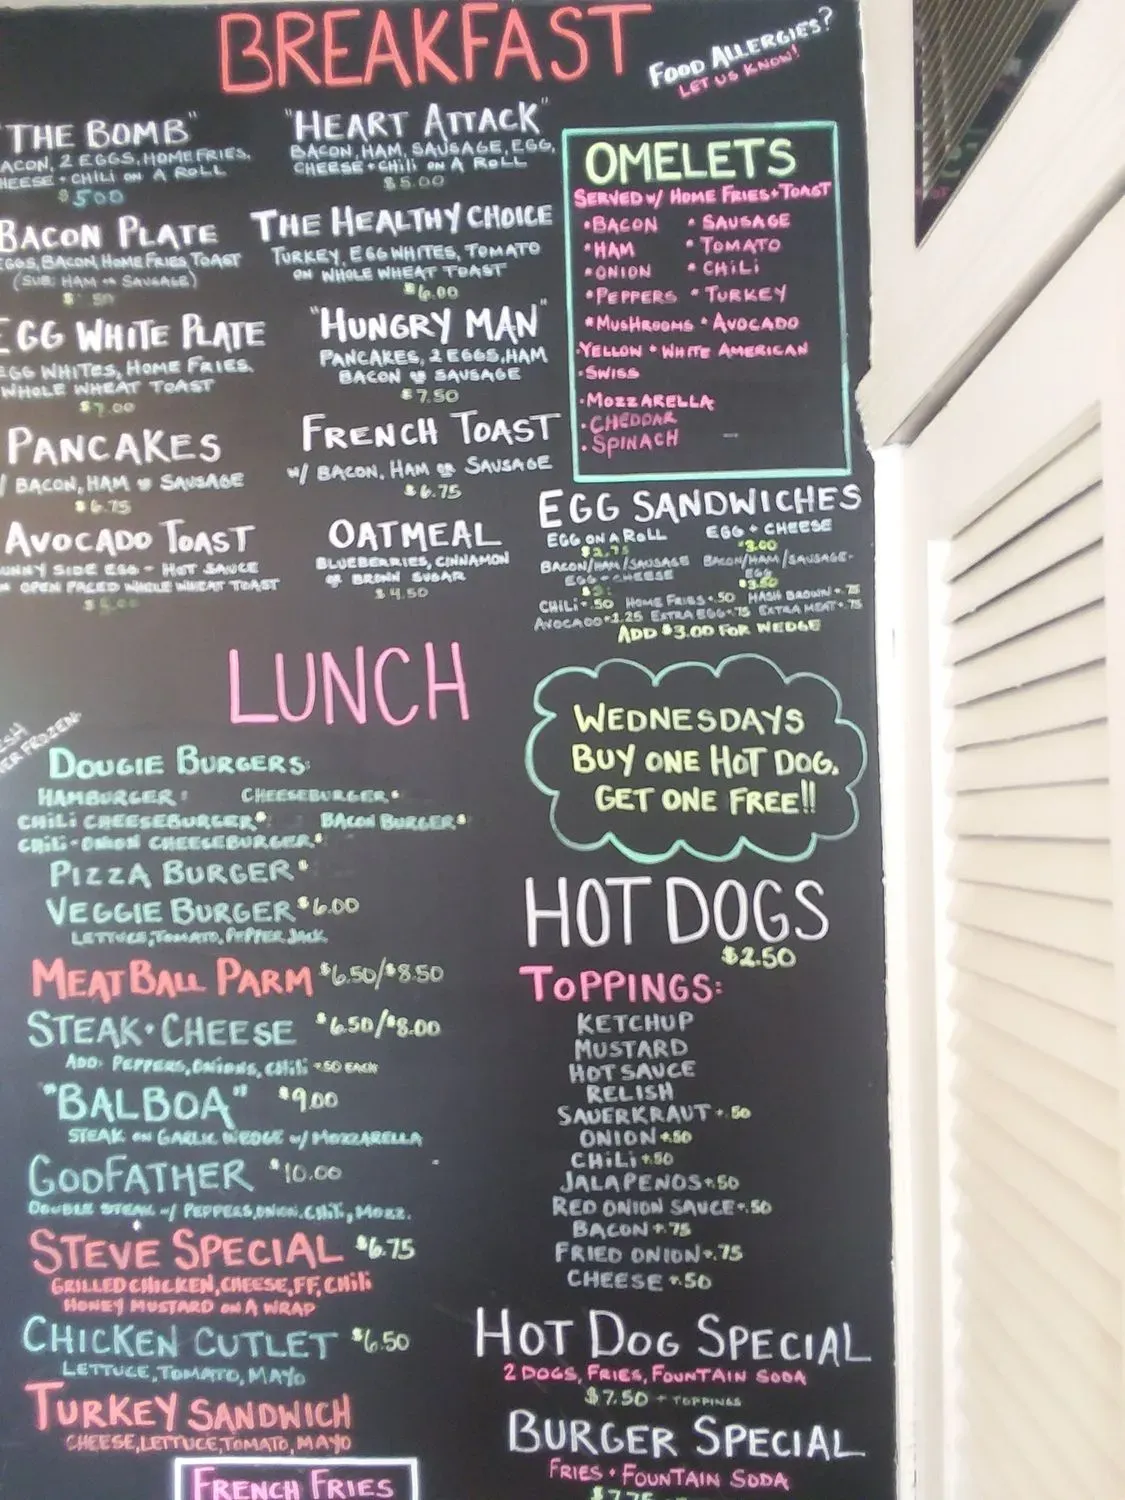 BREAKFAST
FOOD ALLERGIES?
LET US KNOW!
"THE BOMB"
BACON, 2 EGGS, HOME FRIES,
CHEESE + CHILI ON A ROLL
$5.00
"HEART ATTACK"
BACON, HAM, SAUSAGE, EGG,
CHEESE + CHILI ON A ROLL
$5.00
BACON PLATE
EGGS, BACON, HOME FRIES TOAST
(SUB HAM OR SAUSAGE)
THE HEALTHY CHOICE
TURKEY, EGG WHITES, TOMATO
ON WHOLE WHEAT TOAST
$6.00
EGG WHITE PLATE
EGG WHITES, HOME FRIES,
WHOLE WHEAT TOAST
$7.00
"HUNGRY MAN"
PANCAKES, 2 EGGS, HAM
BACON OR SAUSAGE
$7.50
PANCAKES
W/ BACON, HAM OR SAUSAGE
$6.75
FRENCH TOAST
W/ BACON, HAM OR SAUSAGE
$6.75
AVOCADO TOAST
SUNNY SIDE EGG - HOT SAUCE
OPEN FACED WHOLE WHEAT TOAST
OATMEAL
BLUEBERRIES, CINNAMON
OR BROWN SUGAR
$4.50
OMELETS
SERVED W/ HOME FRIES + TOAST
• BACON • SAUSAGE
• HAM • TOMATO
• ONION • CHILI
• PEPPERS • TURKEY
• MUSHROOMS • AVOCADO
• YELLOW + WHITE AMERICAN
• SWISS
• MOZZARELLA
• CHEDDAR
• SPINACH
EGG SANDWICHES
EGG ON A ROLL EGG + CHEESE
$2.75 $3.00
BACON/HAM/SAUSAGE BACON/HAM/SAUSAGE-
EGG - CHEESE EGG
$3.50
CHILI + .50 HOME FRIES + .50 HASH BROWN + .75
AVOCADO + 1.25 EXTRA EGG + .75 EXTRA MEAT + .75
ADD $3.00 FOR WEDGE
LUNCH
DOUGIE BURGERS:
HAMBURGER CHEESEBURGER
CHILI CHEESEBURGER BACON BURGER
CHILI-ONION CHEESEBURGER
PIZZA BURGER
VEGGIE BURGER $6.00
LETTUCE, TOMATO, PEPPER JACK
MEATBALL PARM $6.50/$8.50
STEAK • CHEESE $6.50/$8.00
ADD: PEPPERS, ONIONS, CHILI +.50 EACH
"BALBOA" $9.00
STEAK ON GARLIC WEDGE W/ MOZZARELLA
GODFATHER $10.00
DOUBLE STEAK W/ PEPPERS, ONION, CHILI, MOZZ.
STEVE SPECIAL $6.75
GRILLED CHICKEN, CHEESE, FF, CHILI
HONEY MUSTARD ON A WRAP
CHICKEN CUTLET $6.50
LETTUCE, TOMATO, MAYO
TURKEY SANDWICH
CHEESE, LETTUCE, TOMATO, MAYO
FRENCH FRIES
WEDNESDAYS
BUY ONE HOT DOG.
GET ONE FREE!!
HOT DOGS
$2.50
TOPPINGS:
KETCHUP
MUSTARD
HOT SAUCE
RELISH
SAUERKRAUT +.50
ONION +.50
CHILI +.50
JALAPENOS +.50
RED ONION SAUCE +.50
BACON +.75
FRIED ONION +.75
CHEESE +.50
HOT DOG SPECIAL
2 DOGS, FRIES, FOUNTAIN SODA
$7.50 + TOPPINGS
BURGER SPECIAL
FRIES + FOUNTAIN SODA
$7.75